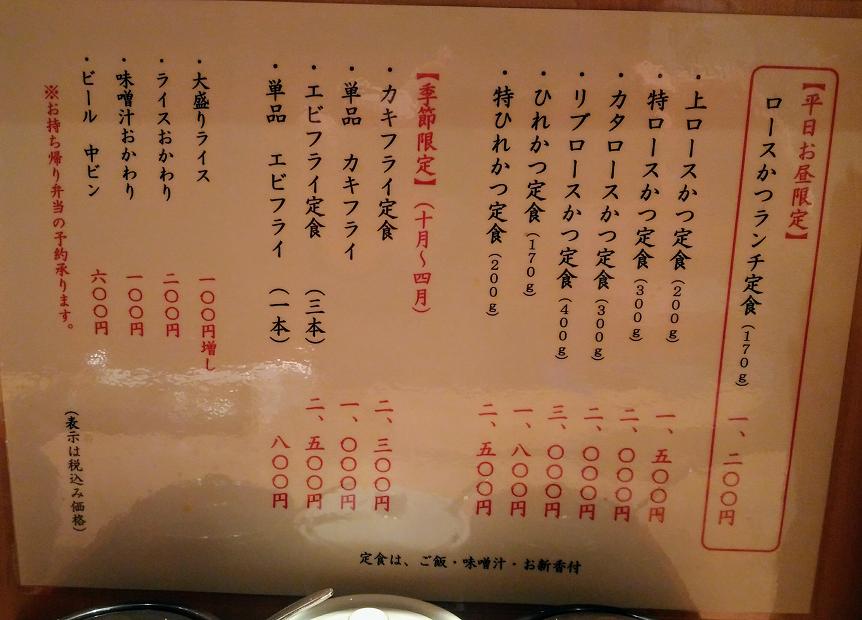 【平日お昼限定】
ロースかつランチ定食（170g） 一、二〇〇円
・上ロースかつ定食（200g） 一、五〇〇円
・特ロースかつ定食（300g） 二、〇〇〇円
・カタロースかつ定食（300g） 二、〇〇〇円
・リブロースかつ定食（400g） 三、〇〇〇円
・ひれかつ定食（170g） 一、八〇〇円
・特ひれかつ定食（200g） 二、五〇〇円
【季節限定】（十月～四月）
・カキフライ定食 二、三〇〇円
・単品 カキフライ 一、〇〇〇円
・エビフライ定食（三本） 二、五〇〇円
・単品 エビフライ（一本） 八〇〇円
・大盛りライス 一〇〇円増し
・ライスおかわり 二〇〇円
・味噌汁おかわり 一〇〇円
・ビール 中ビン 六〇〇円
※お持ち帰り弁当の予約承ります。
（表示は税込み価格）
定食は、ご飯・味噌汁・お新香付